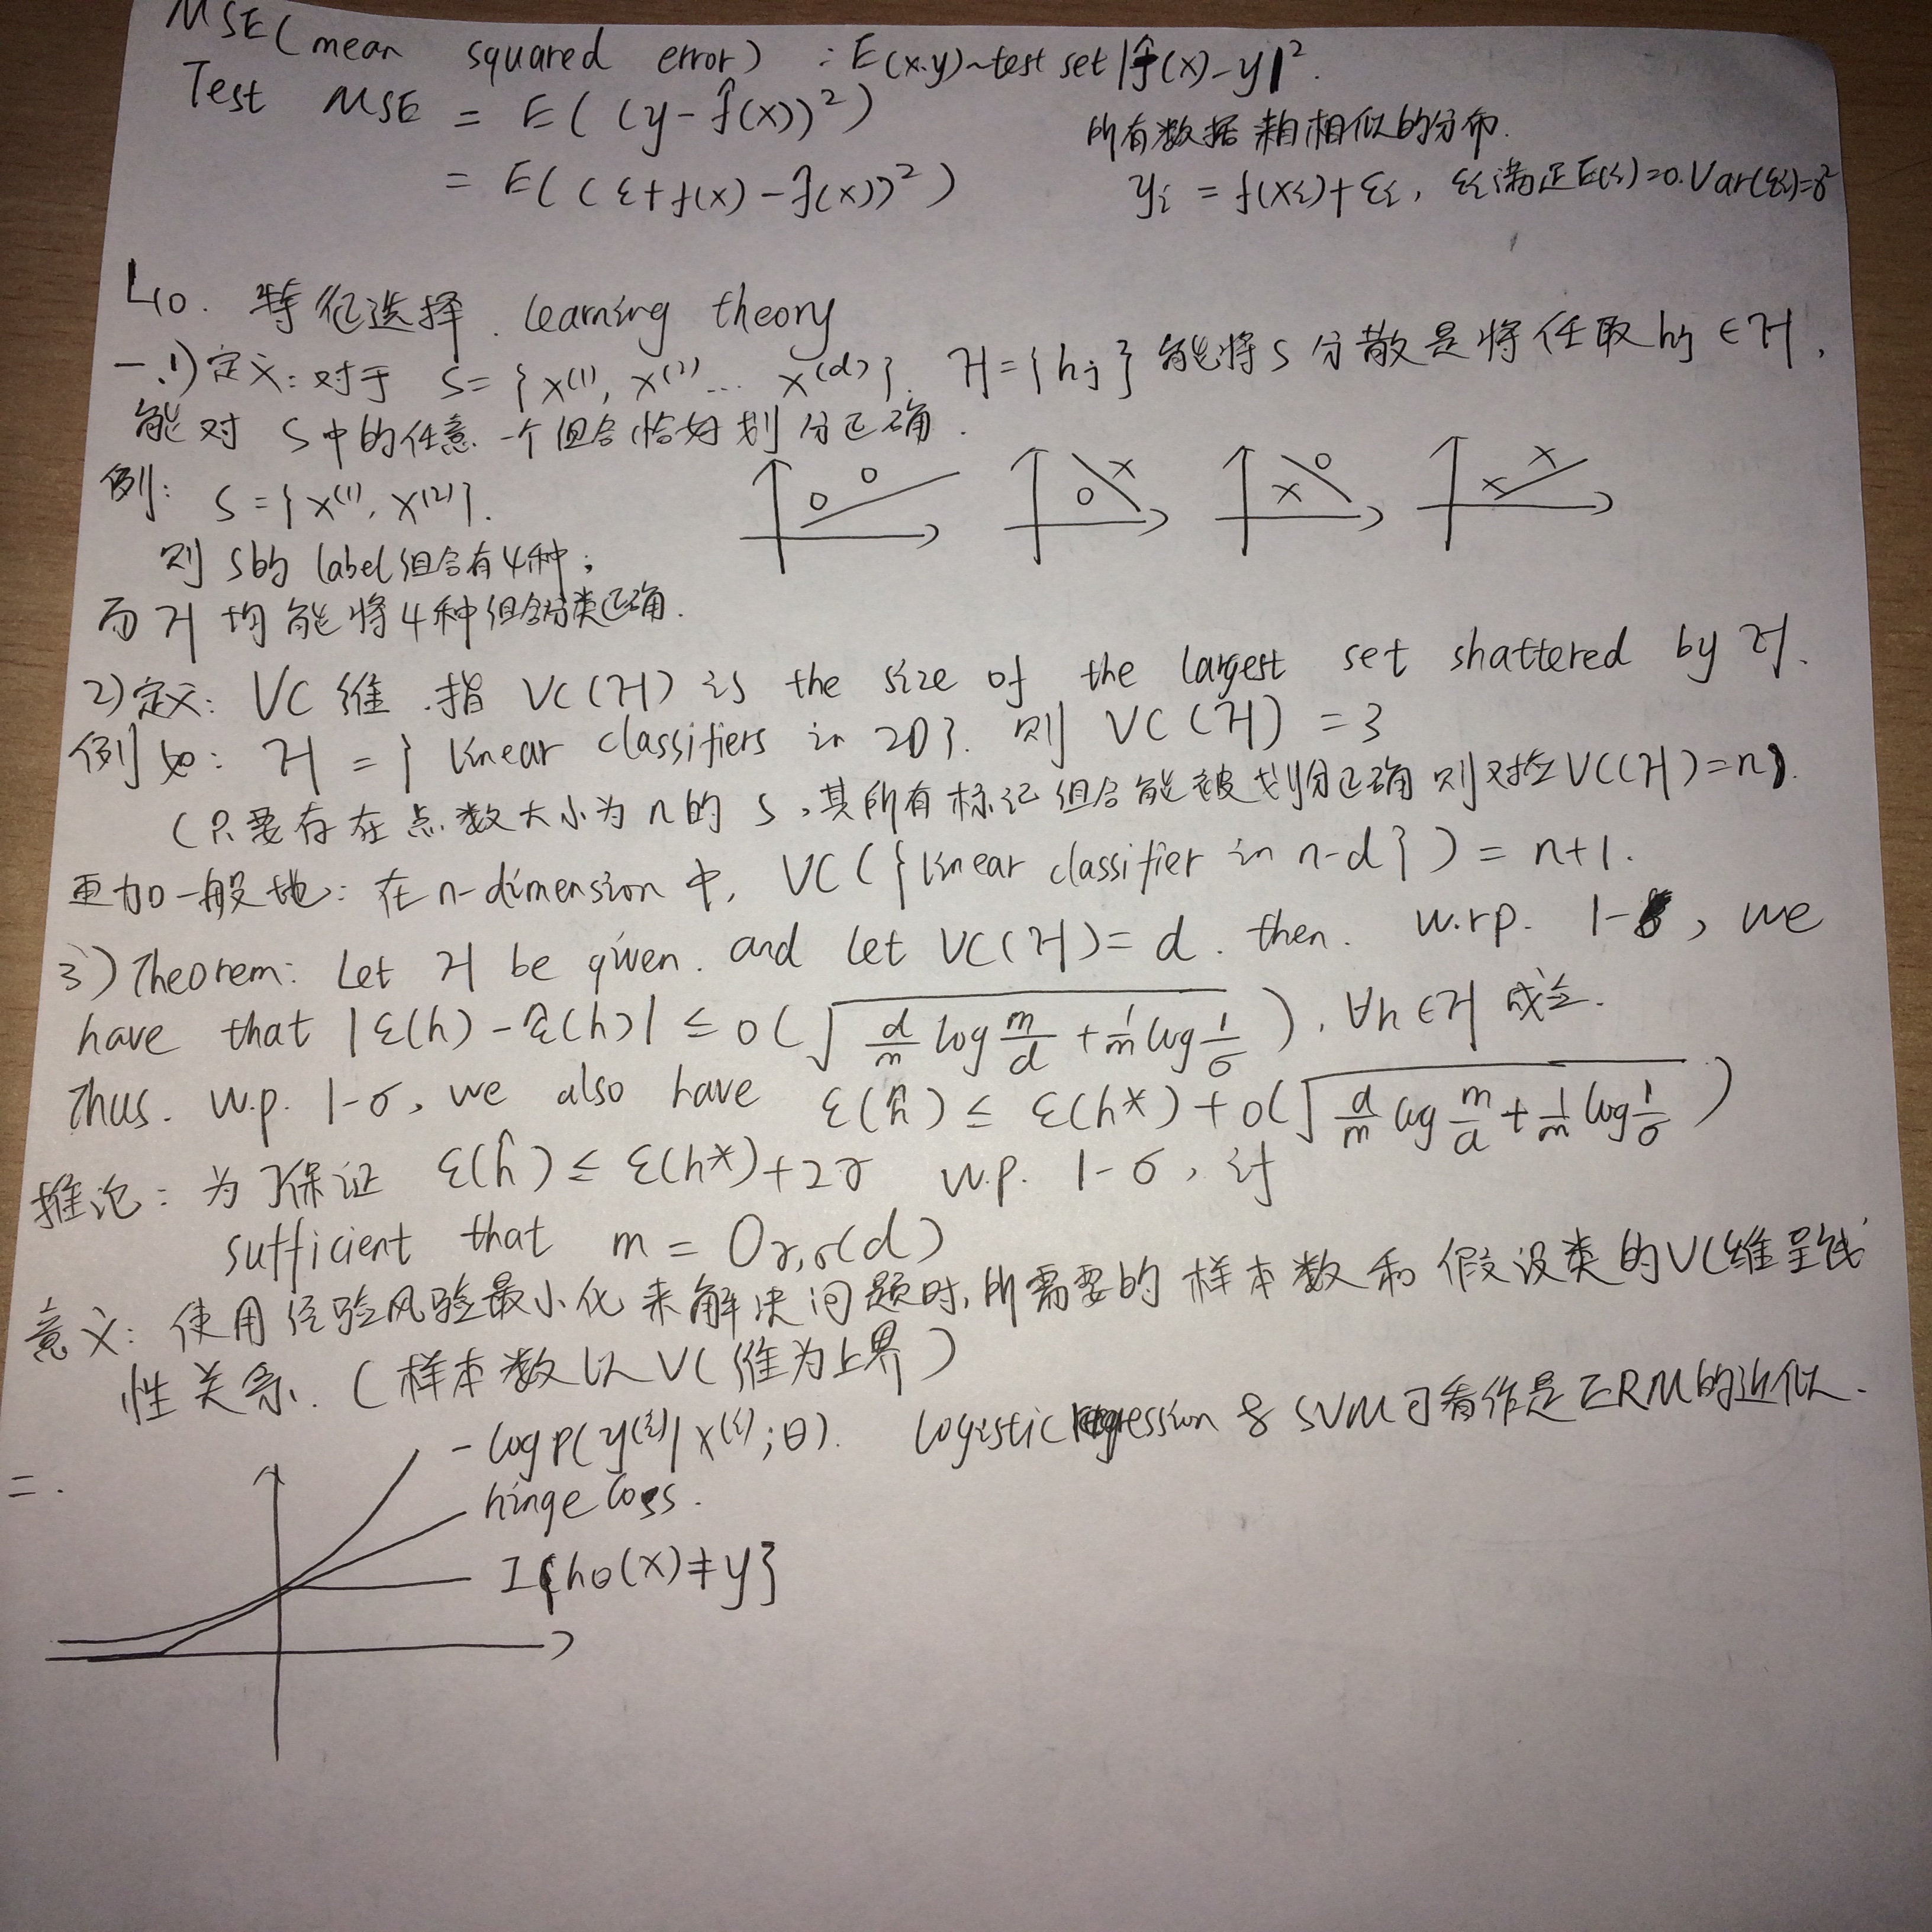 MSE(mean squared error) : E(x.y)~test set |f̂(x)-y|².
Test MSE = E((y-f̂(x))²)
= E((ε+f(x)-f̂(x))²)
所有数据来自相似的分布.
yi = f(xi)+εi, εi满足E(εi)=0. Var(εi)=σ²
L10. 特征选择. learning theory
一.1)定义:对于 S={x⁽¹⁾, x⁽²⁾... x⁽ᵈ⁾}. H={hj}能将S分散是将任取hj∈H,
能对S中的任意一个组合恰好划分正确.
例: S={x⁽¹⁾, x⁽²⁾}.
则S的label组合有4种;
而H均能将4种组合分类正确.
2)定义: VC维.指VC(H) is the size of the largest set shattered by H.
例如: H={linear classifiers in 2D}. 则VC(H)=3
(只要存在点数大小为n的S,其所有标记组合能被划分正确则对应VC(H)=n).
更加一般地:在n-dimension中, VC({linear classifier in n-d})=n+1.
3)Theorem: Let H be given. and let VC(H)=d. then. w.r.p. 1-δ, we
have that |ε(h)-ε̂(h)| ≤ O(√(d/m log m/d + 1/m log 1/σ)), ∀h∈H成立.
Thus. w.p. 1-σ, we also have ε(ĥ) ≤ ε(h*)+O(√(d/m log m/d + 1/m log 1/σ))
推论:为了保证 ε(ĥ) ≤ ε(h*)+2γ w.p. 1-σ, it
sufficient that m=Oγ,σ(d)
意义:使用经验风险最小化来解决问题时,所需要的样本数和假设类的VC维呈线
性关系.(样本数以VC维为上界)
二.
-log p(y⁽ⁱ⁾|x⁽ⁱ⁾;θ). logistic regression & SVM可看作是ERM的近似.
hinge loss.
I{hθ(x)≠y}